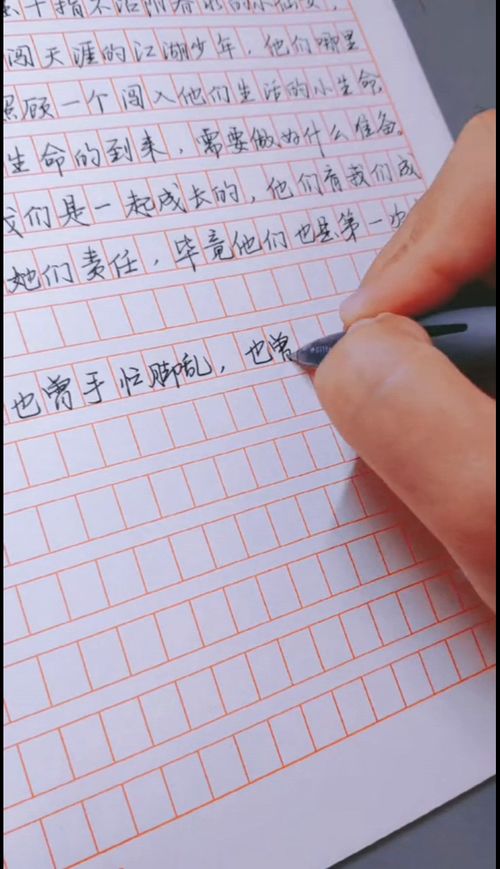 十指不沾阳春水的小仙女，
闯天涯的江湖少年，他们哪里
照顾一个闯入他们生活的小生命，
生命的到来，需要做好什么准备。
我们是一起成长的，他们有我们成
她们责任，毕竟他们也是第一次
也曾手忙脚乱，也曾